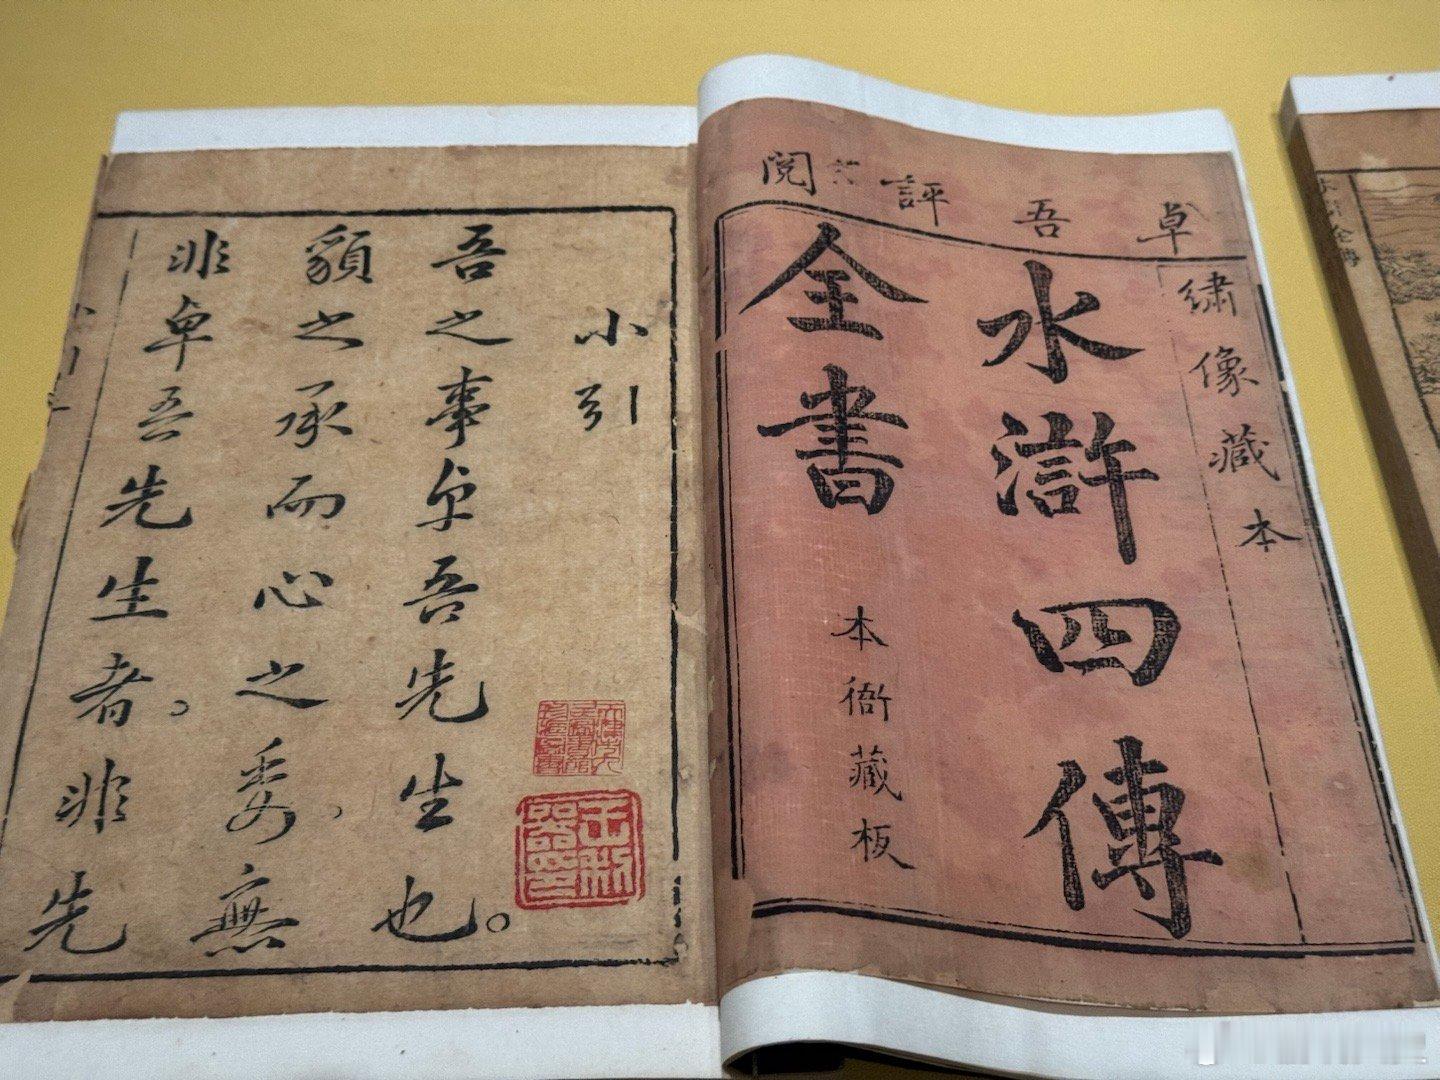 卓吾評閱
繡像藏本
水滸四傳
全書
本衙藏板
小引
吾之事卓吾先生也。
䫉之承而心之委、無
非卓吾先生者。非先
小引
王利器印